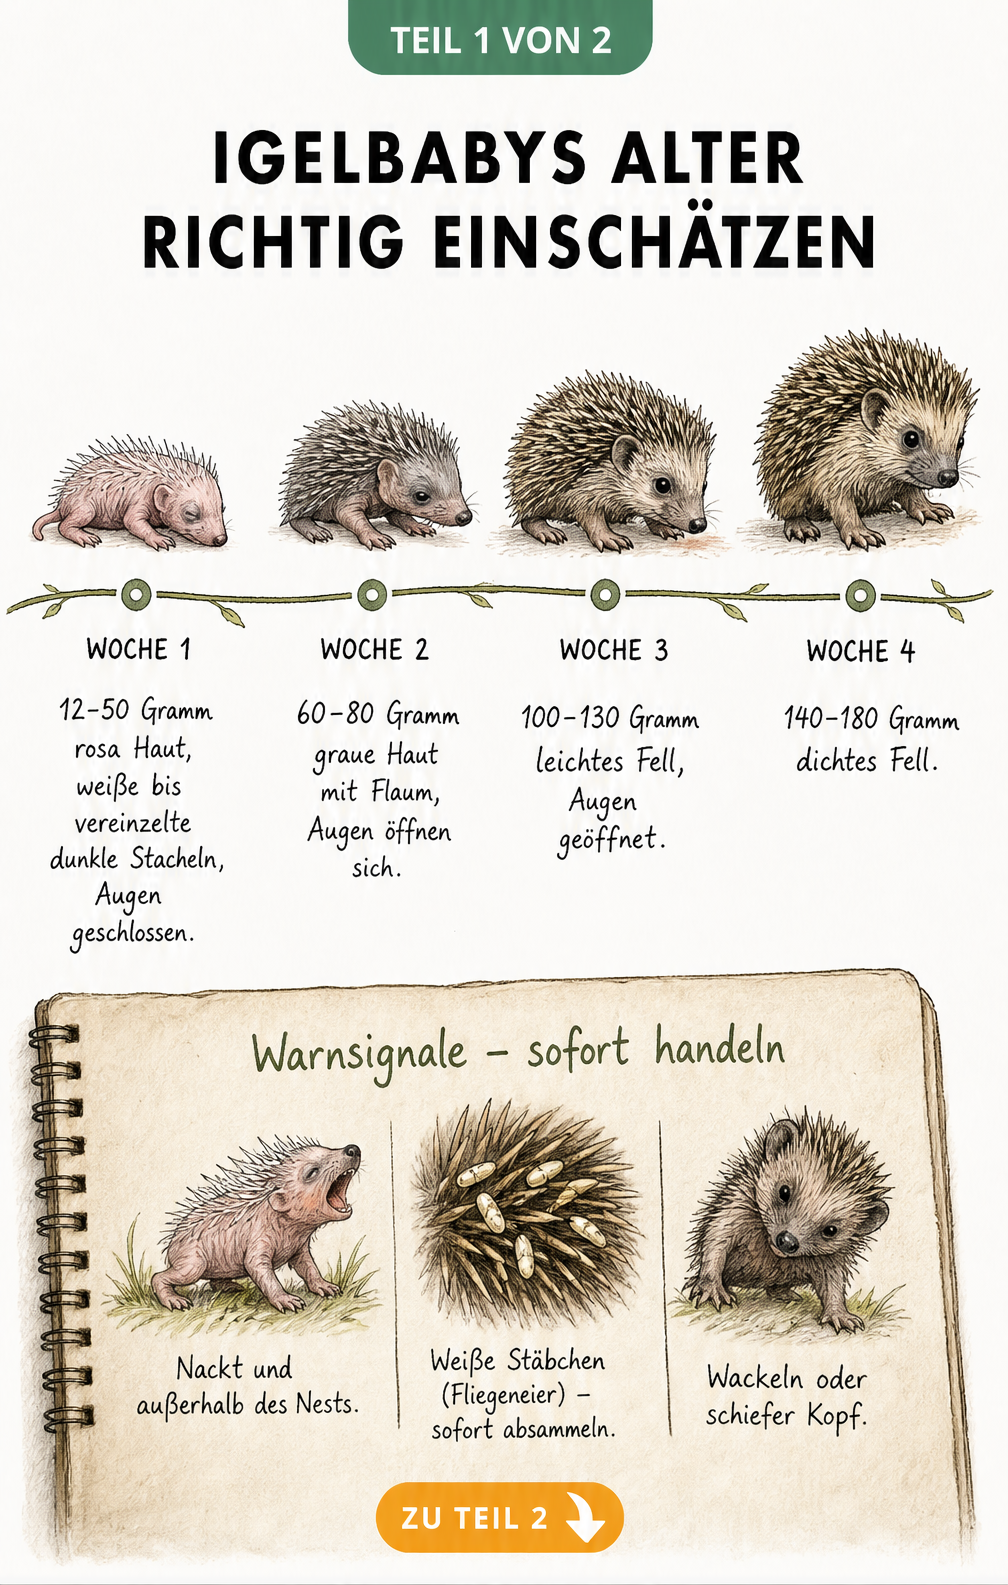 TEIL 1 VON 2
IGELBABYS ALTER
RICHTIG EINSCHÄTZEN
WOCHE 1
12–50 Gramm
rosa Haut,
weiße bis
vereinzelte
dunkle Stacheln,
Augen
geschlossen.
WOCHE 2
60–80 Gramm
graue Haut
mit Flaum,
Augen öffnen
sich.
WOCHE 3
100–130 Gramm
leichtes Fell,
Augen
geöffnet.
WOCHE 4
140–180 Gramm
dichtes Fell.
Warnsignale – sofort handeln
Nackt und
außerhalb des Nests.
Weiße Stäbchen
(Fliegeneier) –
sofort absammeln.
Wackeln oder
schiefer Kopf.
ZU TEIL 2